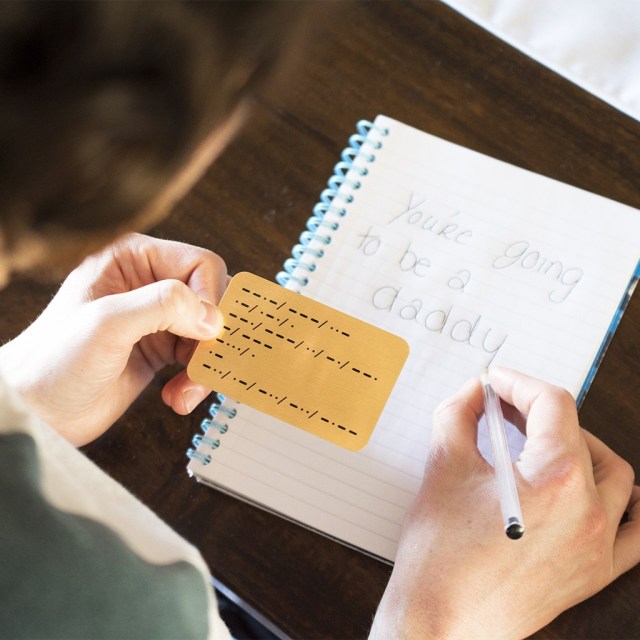 You're going
to be a
daddy